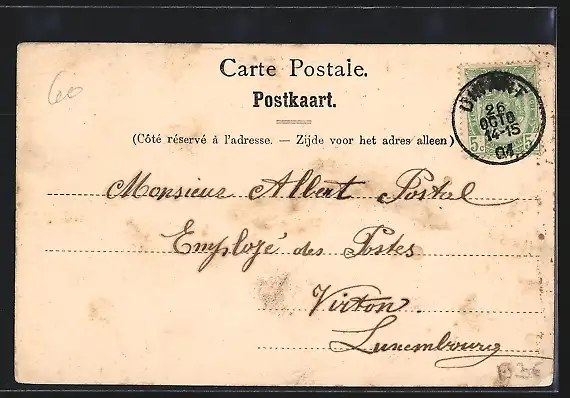 60
Carte Postale.
Postkaart.
(Côté réservé à l'adresse. — Zijde voor het adres alleen)
5c 5c
DINANT
26
OCTO
14-15
04
Monsieur Albert Postal
Employé des Postes
Virton.
Luxembourg